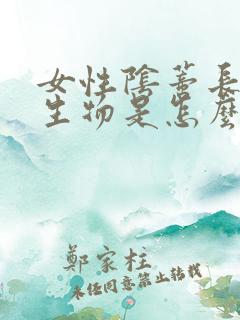 女性陰蒂長
生物是怎麼
鄭家柱
未经同意禁止转载